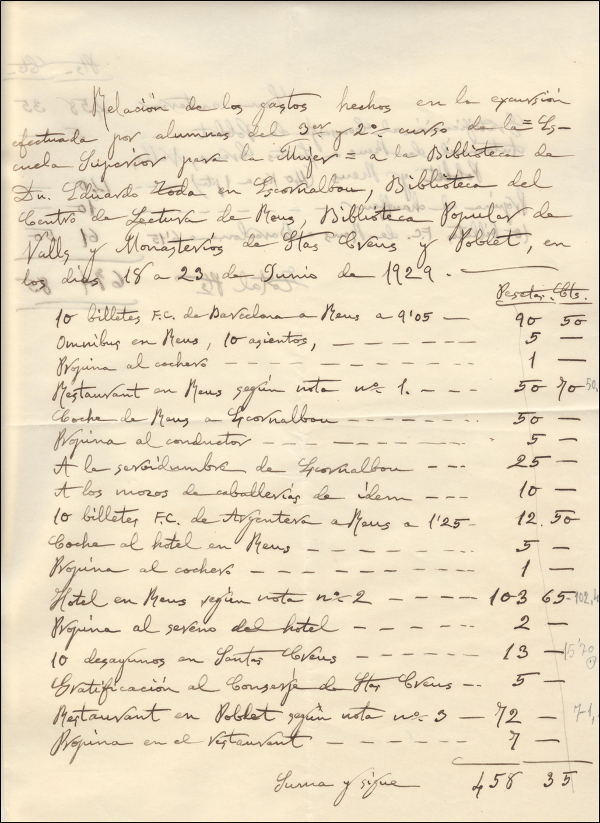 Relación de los gastos hechos en la excursión
efectuada por alumnas del 3er y 2º curso de la "Es-
cuela Superior para la Mujer" a la Biblioteca de
Dn. Eduardo Toda en Escornalbou, Biblioteca del
Centro de Lectura de Reus, Biblioteca Popular de
Valls y Monasterios de Stas Creus y Poblet, en
los dias, 18 a 23 de Junio de 1929. —
Pesetas. Cts.
10 billetes F.C. de Barcelona a Reus a 9'05 — 90 50
Omnibus en Reus, 10 asientos, — — — — — 5 —
Propina al cochero — — — — — — 1 —
Restaurant en Reus según nota nº 1. - - - 50 70 50,
Coche de Reus a Escornalbou — — — — 50 —
Propina al conductor — — — — — — 5 —
A la servidumbre de Escornalbou — - - 25 —
A los mozos de caballerías de ídem — - - 10 —
10 billetes F.C. de Argentera a Reus a 1'25 - 12. 50
Coche al hotel en Reus — — — — — 5 —
Propina al cochero — — — — — — 1 —
Hotel en Reus según nota nº 2 — — — 103 65 - 102,
Propina al sereno del hotel — — — — — 2 —
10 desayunos en Santas Creus — — — — 13 — 15'70
Gratificación al Conserje de Stas Creus - - 5 —
Restaurant en Poblet según nota nº 3 — 72 — 71,
Propina en el restaurant — — — — — 7 —
Suma y sigue 458 35